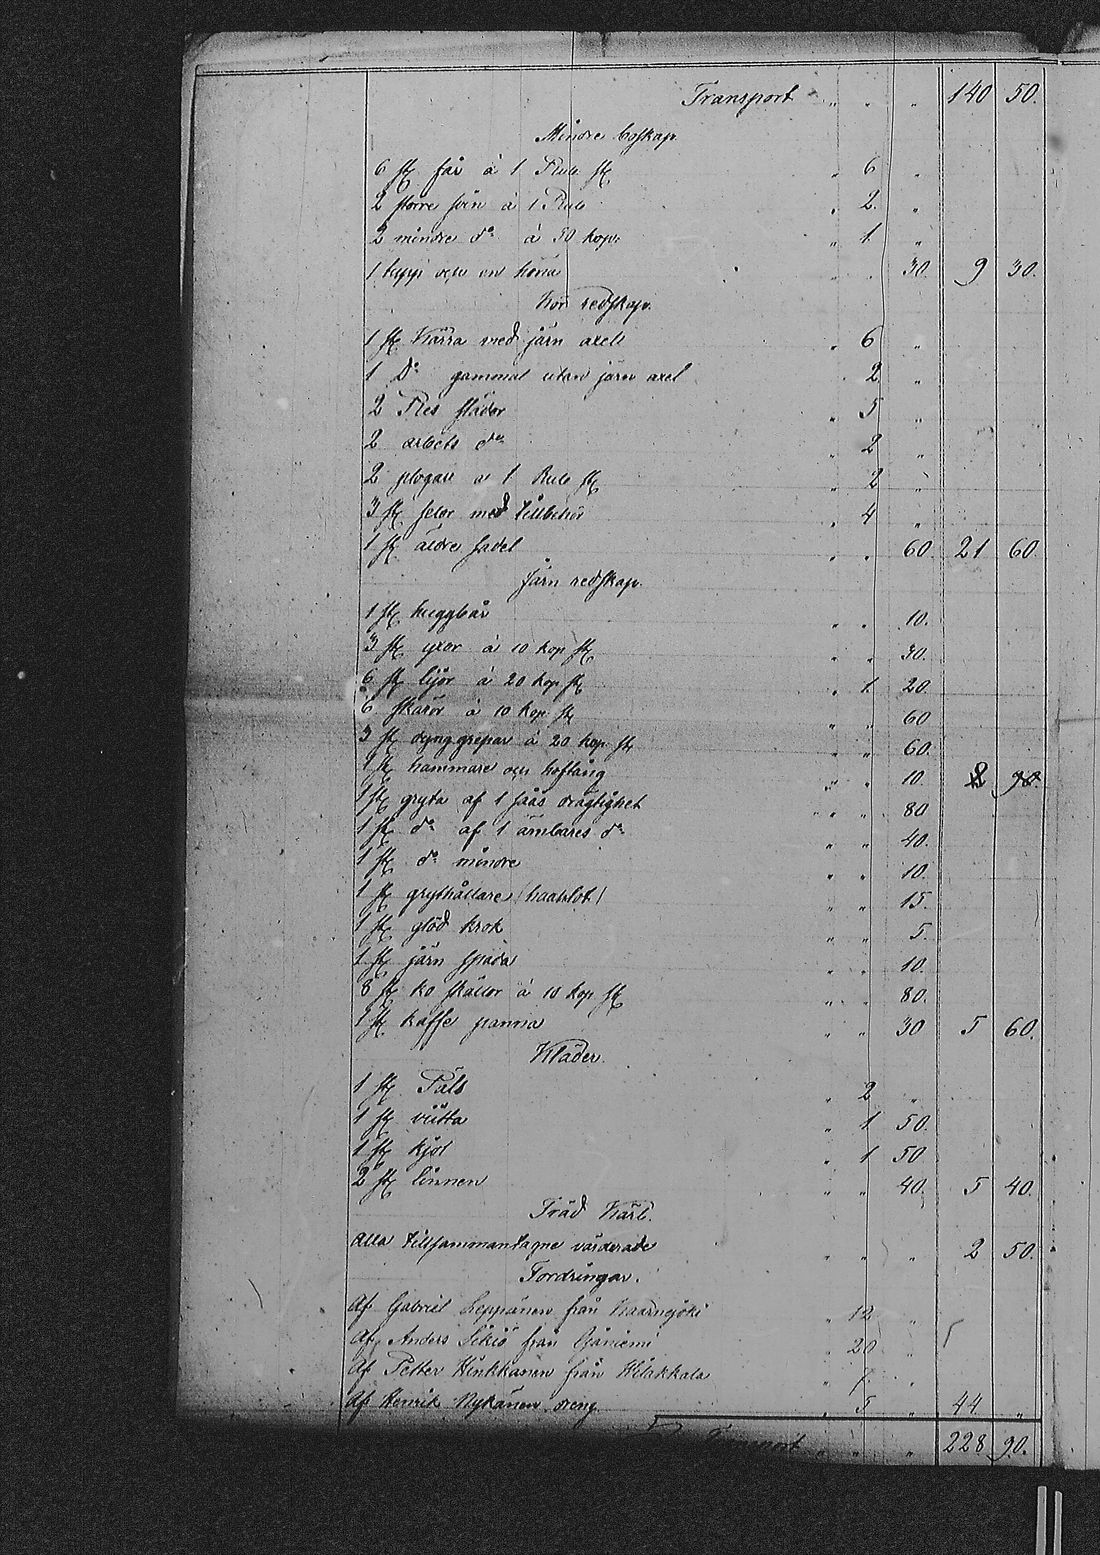 Transport " " " 140 50.
Mindre boskap.
6 st får à 1 Rub st " 6 "
2 större svin à 1 Rub " 2. "
2 mindre do à 50 kop. " 1 "
1 tupp och en höna " " 30. 9 30.
Kör redskap.
1 st Kärra med järn axel " 6 "
1 Do gammal utan järn axel " 2 "
2 Res slädor " 5 "
2 arbets do " 2 "
2 plogar à 1 Rub st " 2 "
3 st selor med tillbehör " 4 "
1 st äldre sadel " " 60. 21 60.
Järn redskap.
1 st huggbår " " 10.
3 st yxor à 10 kop st " " 30.
6 st lijor à 20 kop st " 1 20.
6 skäror à 10 kop st " " 60
3 st dynggrepar à 20 kop st " " 60.
1 st hammare och hoftång " " 10.
1 st gryta af 1 säås drägtighet " " 80
1 st do af 1 ämbares do " " 40.
1 st do mindre " " 10.
1 st grythållare (haahlot) " " 15.
1 st glöd krok " " 5.
1 st järn spada " " 10.
8 st ko skällor à 10 kop st " " 80.
1 st kaffe panna " " 30 5 60.
Kläder.
1 st Päls " 2 "
1 st viitta " 1 50.
1 st kjol " 1 50
2 st linnen " " 40. 5 40.
Träd Kärl.
alla tillsammantagne värderade " " " 2 50.
Fordringar.
Af Gabriel Leppänen från " 12 "
Af Anders från " 20 "
Af Petter Hinkkanen från Hilakkala " 7. "
Af Henrik Nykänen dreng " 5 " 44 "
Transport " " " 228 90.